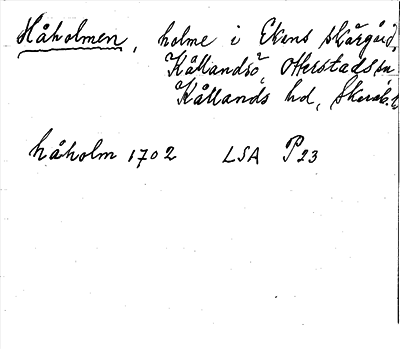 Håholmen, holme i Ekens skärgård,
Kållandsö, Otterstads sn
Kållands hd, Skarab. l.
håholm 1702 LSA P23